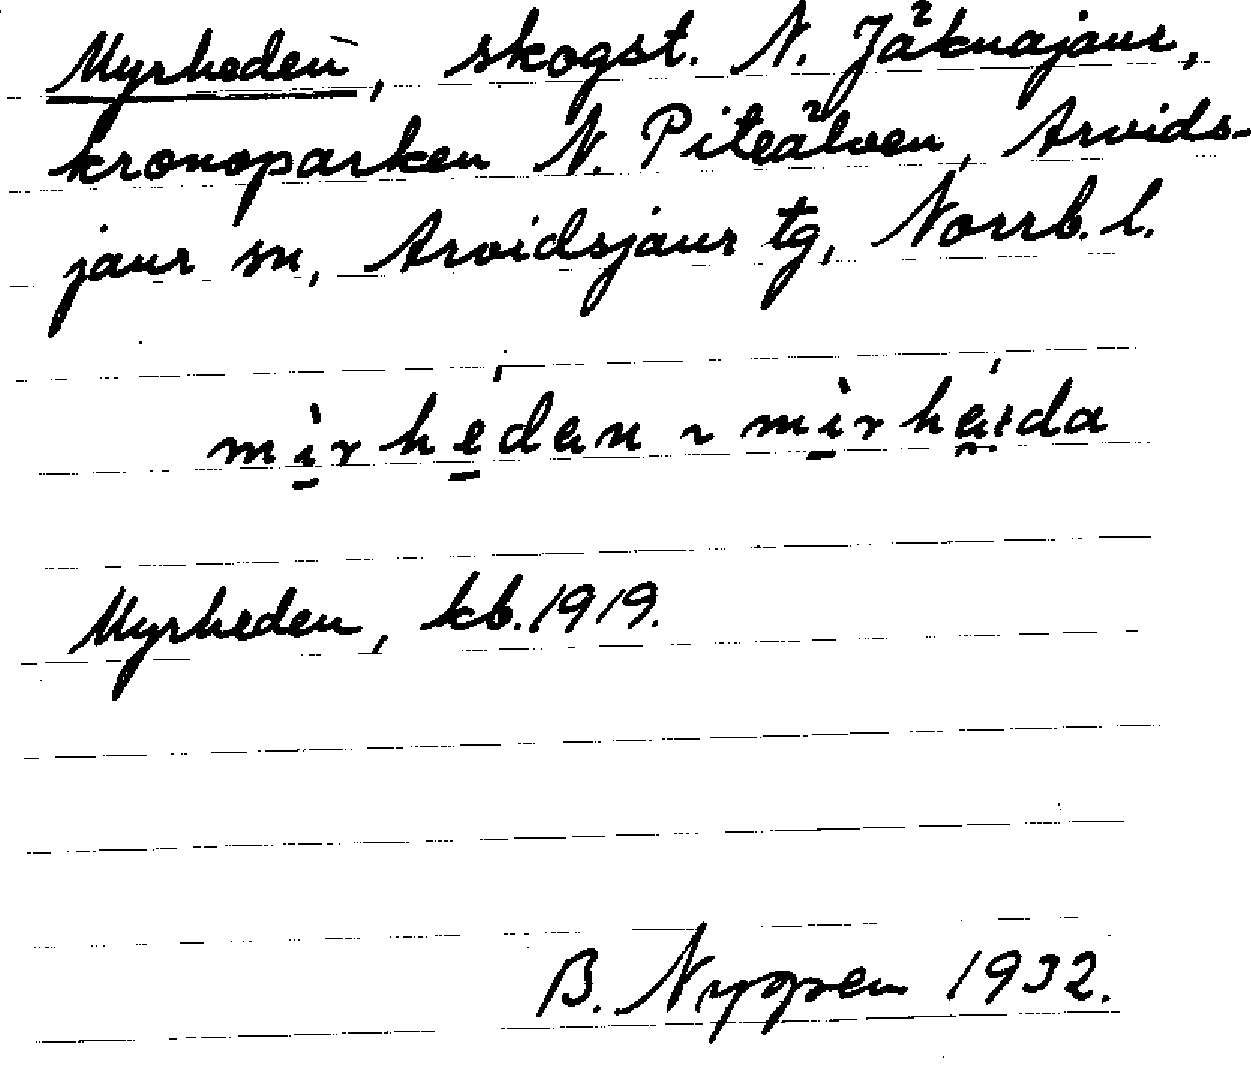 Myrheden, skogst. N. Jäknajaur,
kronoparken N. Piteälven, Arvids-
jaur sn, Arvidsjaur tg, Norrb. l.
mìrhedan ~ mìrhaida
Myrheden, kb. 1919.
B. Nygren 1932.